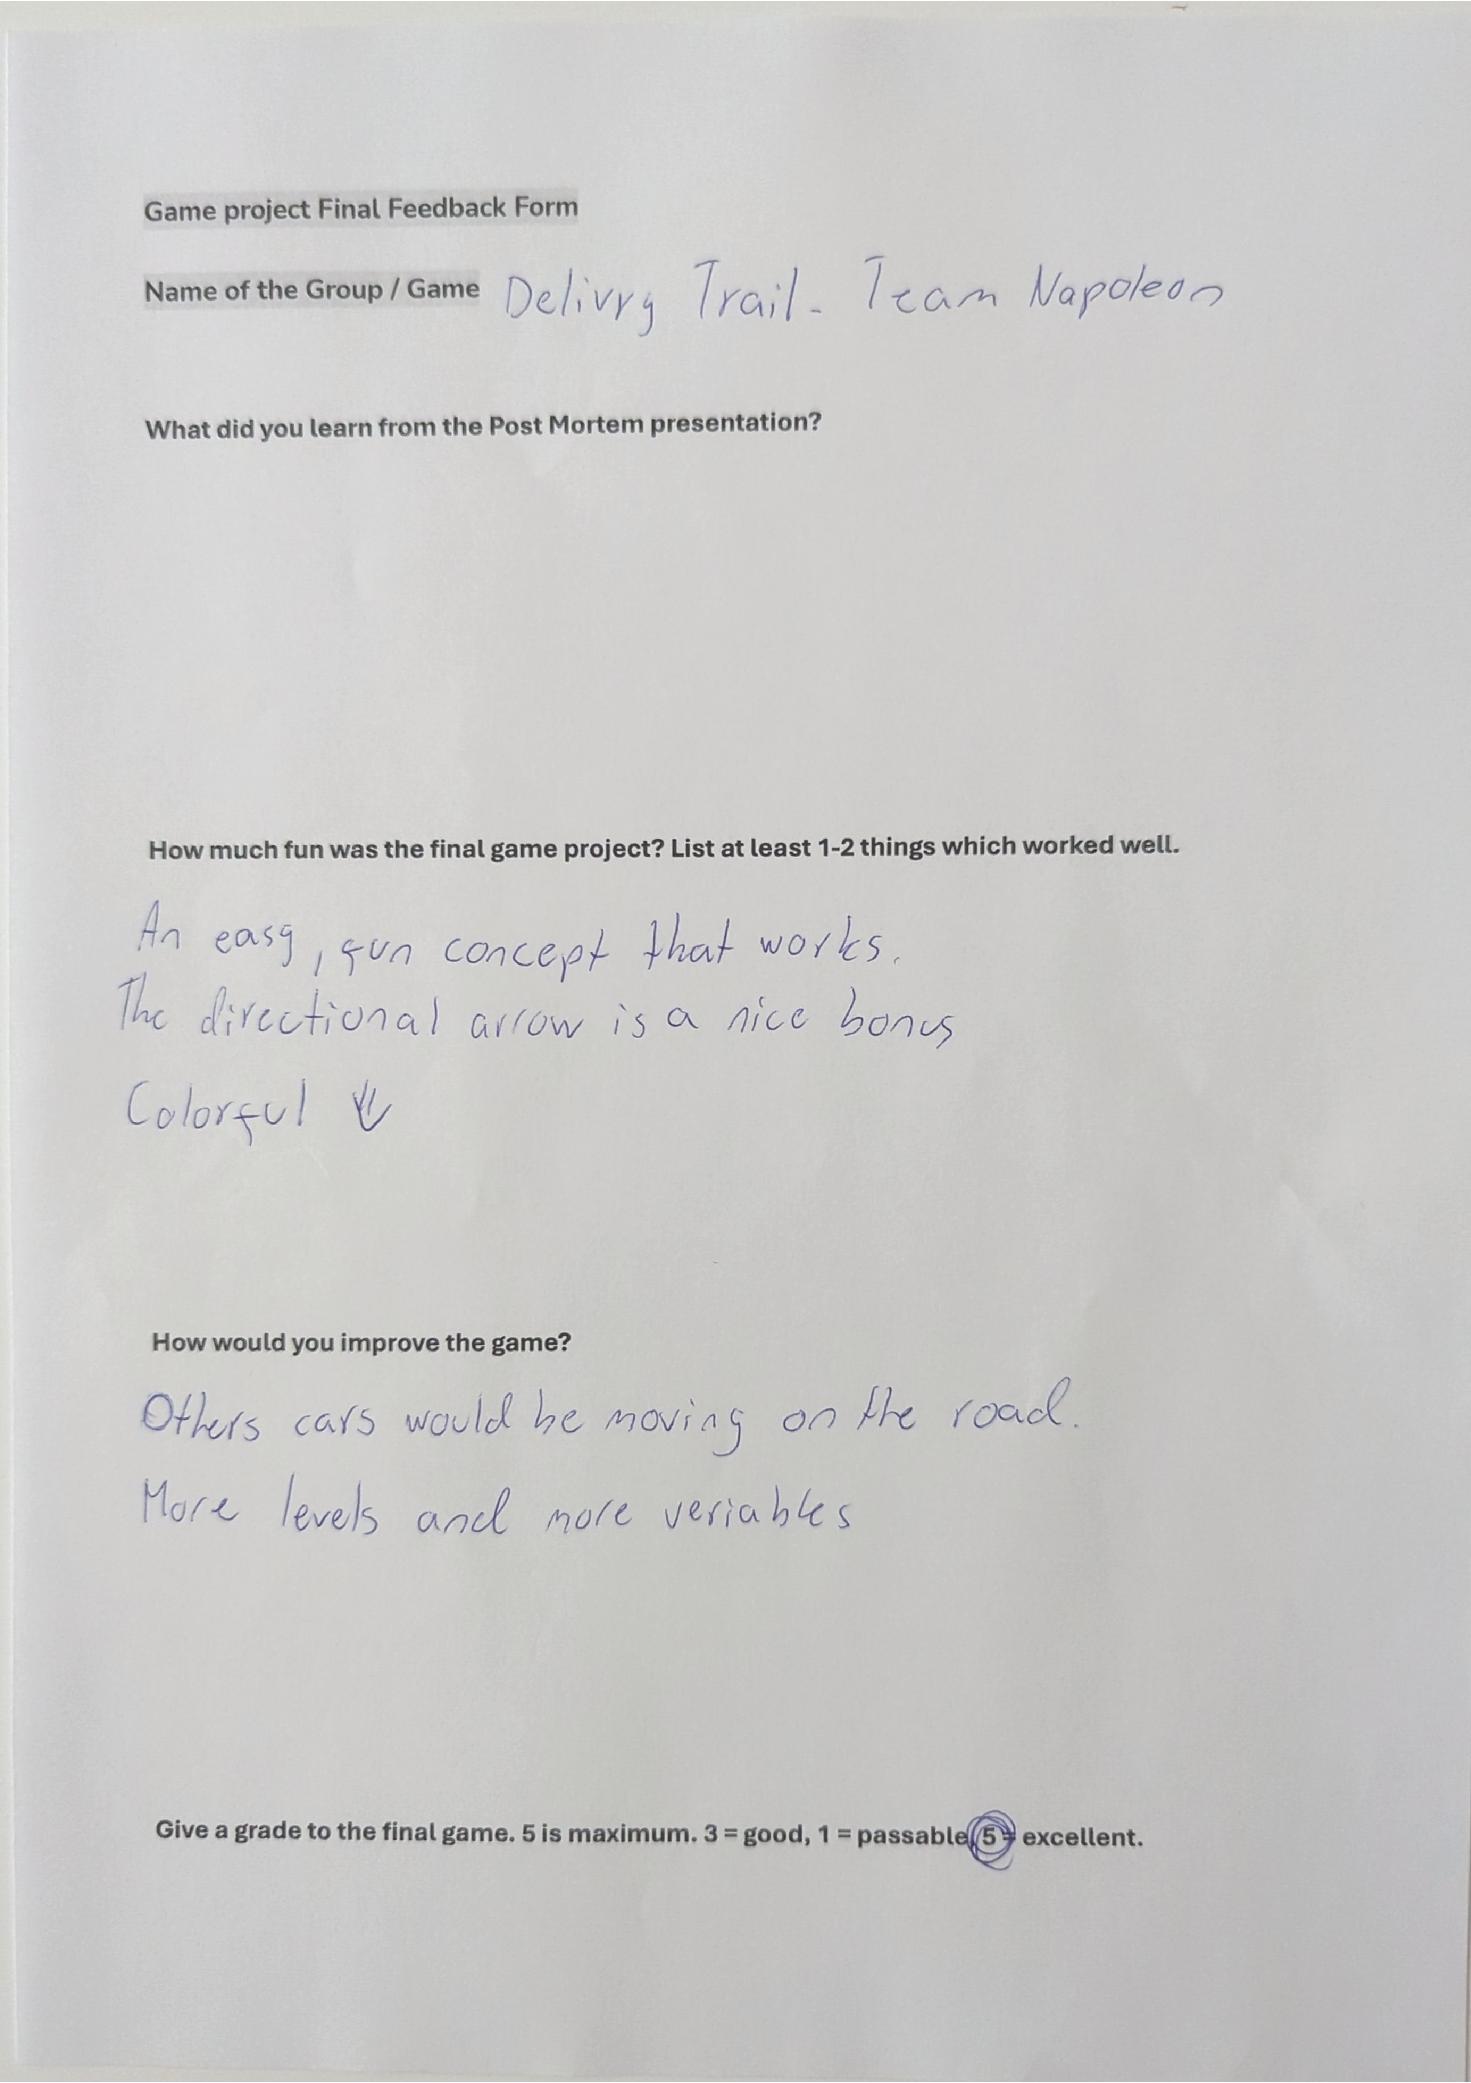 Game project Final Feedback Form
Name of the Group / Game Delivry Trail - Team Napoleon
What did you learn from the Post Mortem presentation?
How much fun was the final game project? List at least 1-2 things which worked well.
An easy, fun concept that works.
The directional arrow is a nice bonus
Colorful
How would you improve the game?
Others cars would be moving on the road.
More levels and more veriables
Give a grade to the final game. 5 is maximum. 3 = good, 1 = passable, 5 = excellent.